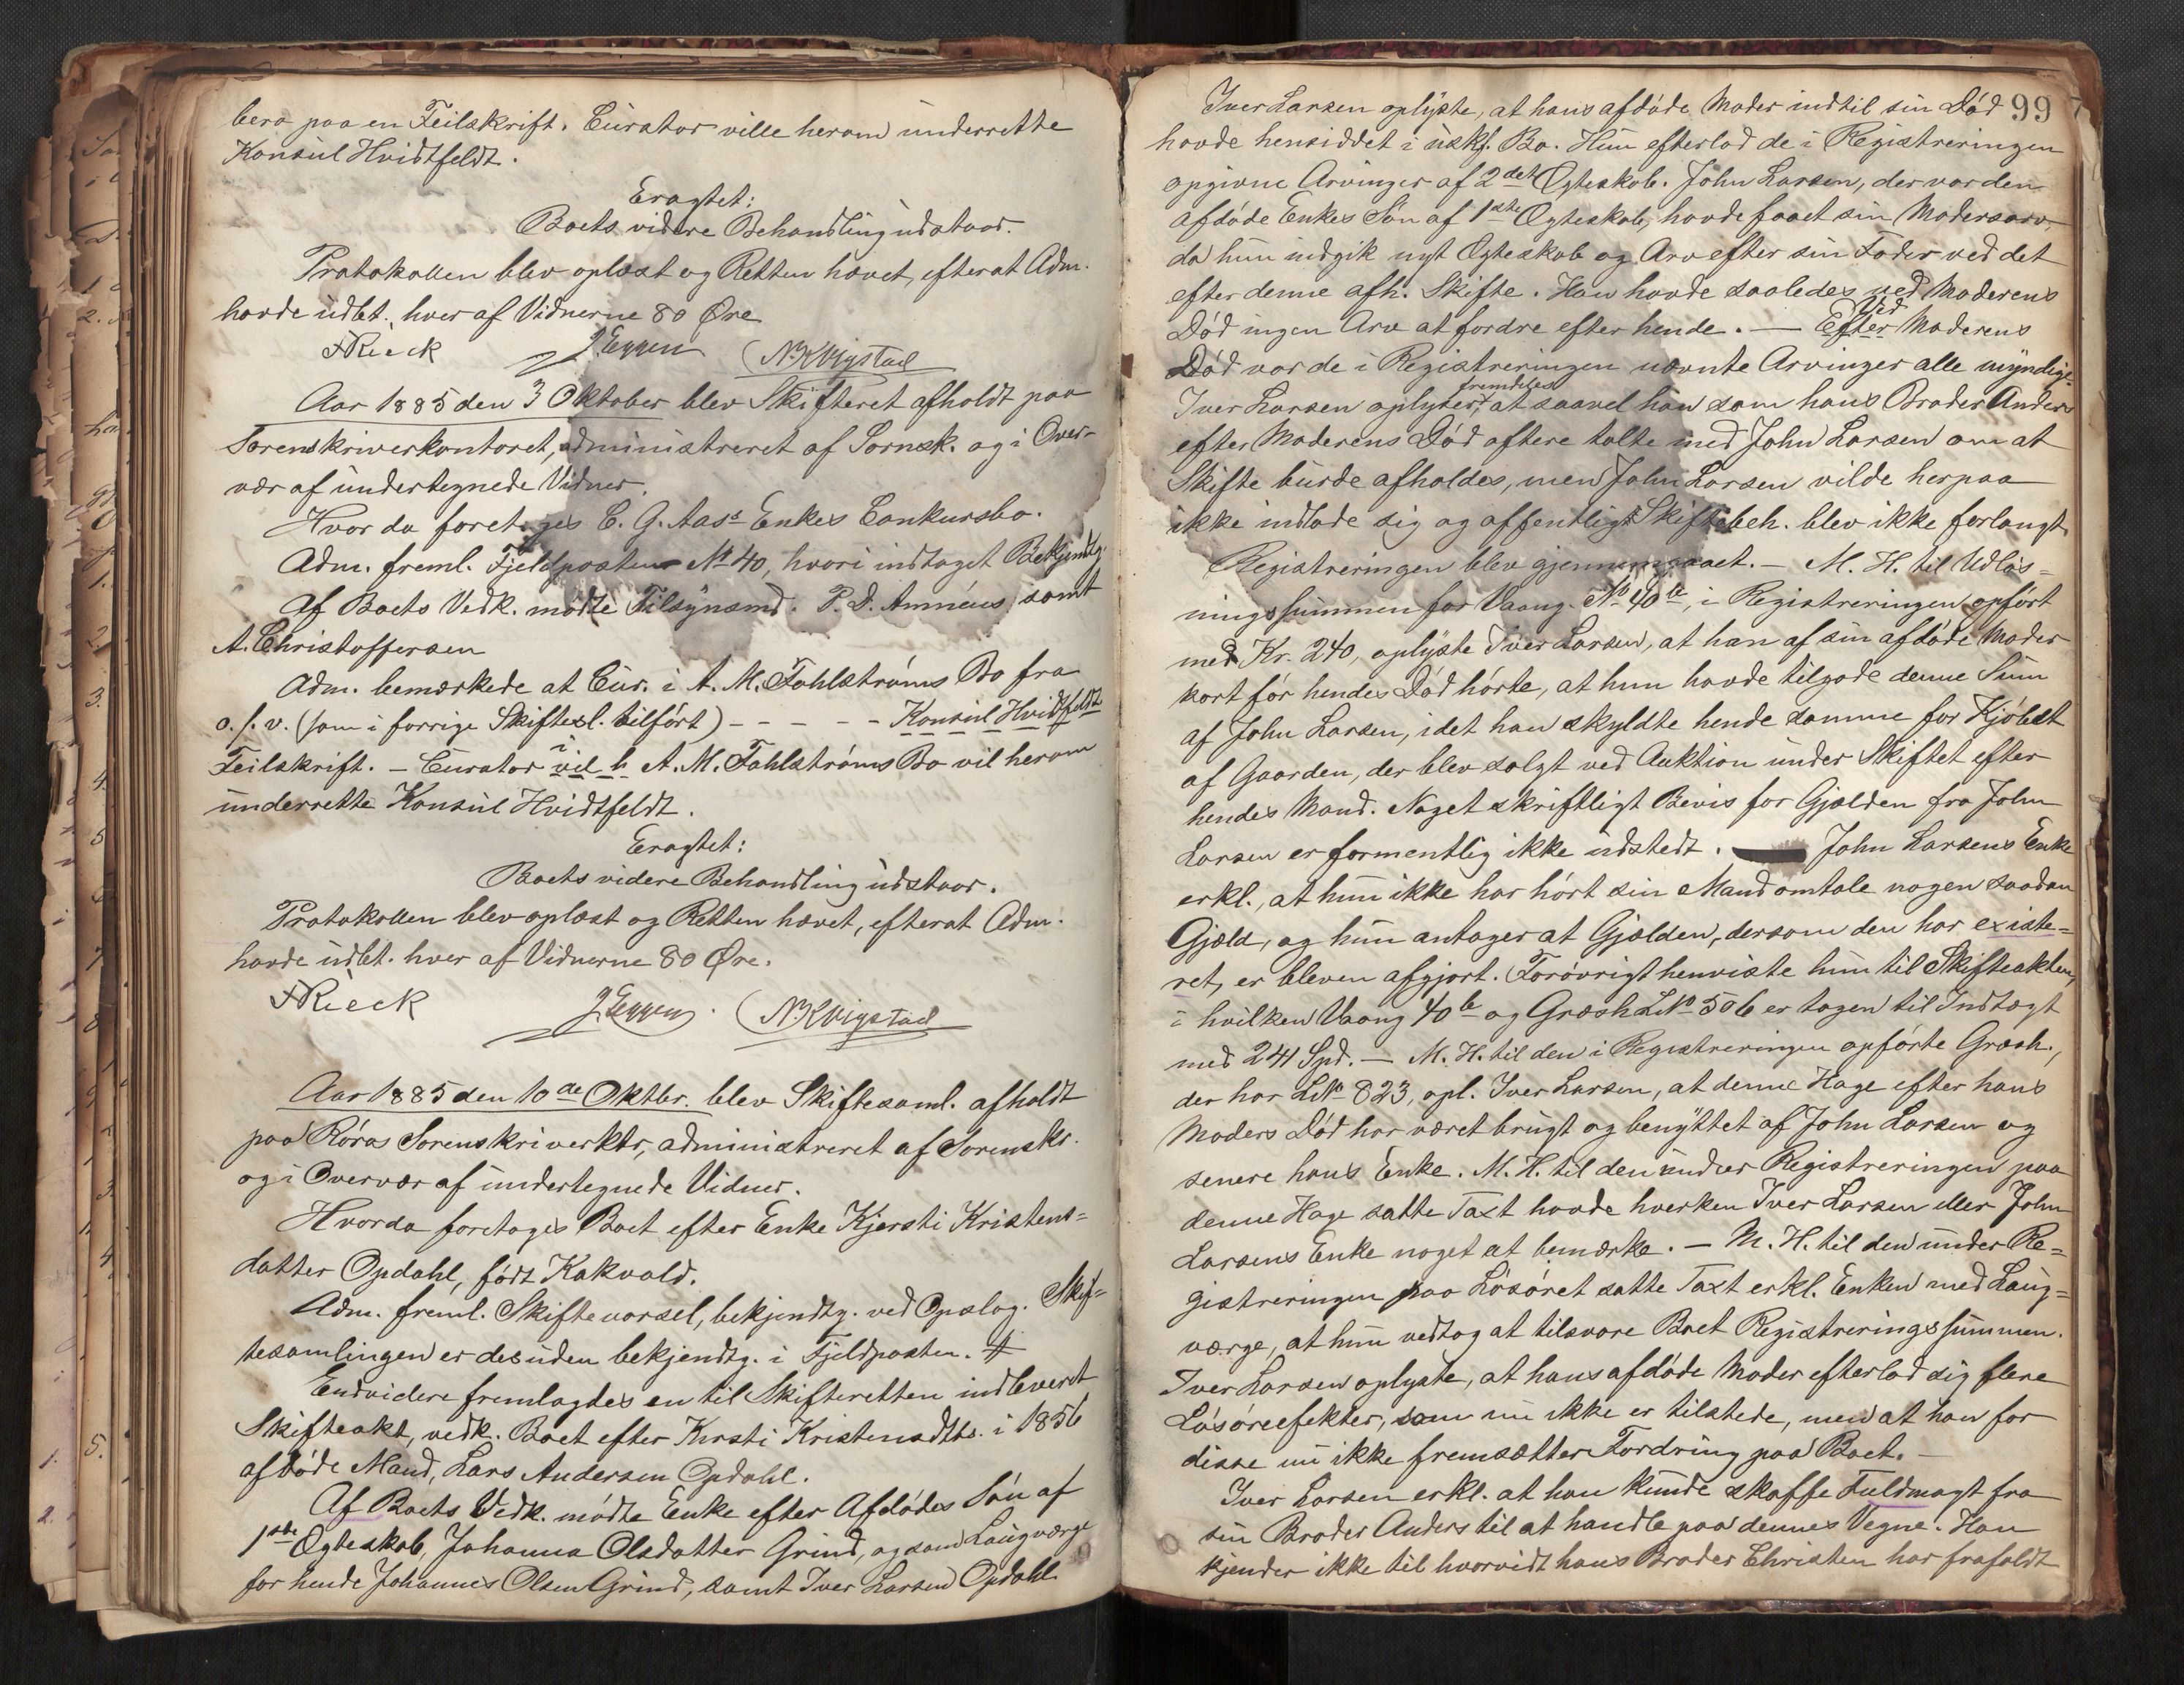 bero paa en Feilskrift. Curator ville herom underrette
Konsul Hvidtfeldt.
Eragtet:
Boets videre Behandling udstaar.
Protokollen blev oplæst og Retten hævet, efterat Adm.
havde udbt. hver af Vidnerne 80 Øre
FRieck J. Eggen N. Kvigstad
Aar 1885 den 3 Oktober blev Skifteret afholdt paa
Sorenskriverkontoret, administreret af Sornsk. og i Over-
vær af undertegnede Vidner.
Hvor da foretoges C. G. Aass Enkes Conkursbo.
Adm. freml. Fjeldposten No 40, hvori indtaget Bekjendtg.
Af Boets Vedk. mødte Tilsynsmd. P. D. Amnéus samt
A. Christoffersen
Adm. bemærkede at Cur. i A. M. Fahlstrøms Bo fra
o. s. v. (som i forrige Skiftesl. tilført) - - - - - Konsul Hvidtfeldt
Feilskrift. - Curator vil h i A. M. Fahlstrøms Bo vil herom
underrette Konsul Hvidtfeldt.
Eragtet:
Boets videre Behandling udstaar.
Protokollen blev oplæst og Retten hævet, efterat Adm.
havde udbt. hver af Vidnerne 80 Øre.
FRieck J. Eggen. N. Kvigstad
Aar 1885 den 10de Oktbr. blev Skiftesaml. afholdt
paa Røros Sorenskriverktr, administreret af Sorensks.
og i Overvær af undertegnede Vidner.
Hvorda foretoges Boet efter Enke Kjersti Kristens=
datter Opdahl, født Kokvold.
Adm. freml. Skiftevarsel, bekjendtg. ved Opslag. Skif=
tesamlingen er desuden bekjendtg. i Fjeldposten. #
Endvidere fremlagdes en til Skifteretten indleveret
Skifteakt, vedk. Boet efter Kirsti Kristensdtrs. i 1856
afdøde Mand, Lars Andersen Opdahl.
Af Boets Vedk. mødte Enke efter Afdødes Søn af
1ste Ægteskab, Johanna Olsdatter Grind, og som Laugværge
for hende Johannes Olsen Grind, samt Iver Larsen Opdahl
99
Iver Larsen oplyste, at hans afdøde Moder indtil sin Død
havde hensiddet i uskf. Bo. Hun efterlod de i Registreringen
opgivne Arvinger af 2det Ægteskab. John Larsen, der var den
afdøde Enkes Søn af 1ste Ægteskab, havde faaet sin Modersarv,
da hun indgik nyt Ægteskab og Arv efter sin Fader ved det
efter denne afh. Skifte. Han havde saaledes ved Moderens
Død ingen Arv at fordre efter hende. — Efter Ved Moderens
Død var de i Registreringen nævnte Arvinger alle myndige.
Iver Larsen oplyser fremdeles, at saavel han som hans Broder Anders
efter Moderens Død oftere talte med John Larsen om at
Skifte burde afholdes, men John Larsen vilde herpaa
ikke indlade sig og offentligt Skiftebeh. blev ikke forlangt
Registreringen blev gjennemgaaet. — M. H. til Udløs=
ningssummen for Vaang. No 40 b, i Registreringen opført
med Kr. 240, oplyste Iver Larsen, at han af sin afdøde Moder
kort før hendes Død hørte, at hun havde tilgode denne Sum
af John Larsen, idet han skyldte hende samme for Kjøbet
af Gaarden, der blev solgt ved Auktion under Skiftet efter
hendes Mand. Noget skriftligt Bevis for Gjælden fra John
Larsen er formentlig ikke udstedt. John Larsens Enke
erkl., at hun ikke har hørt sin Mand omtale nogen saadan
Gjæld, og hun antager at Gjælden, dersom den har existe=
ret, er bleven afgjort. Forøvrigt henviste hun til Skifteakten,
i hvilken Vaang 40 b og Græsh LNo 506 er tagen til Indtægt
med 241 Spd. — M. H. til den i Registreringen opførte Græsh.,
der har LNo 823, opl. Iver Larsen, at denne Hage efter hans
Moders Død har været brugt og benyttet af John Larsen og
senere hans Enke. M. H. til den under Registreringen paa
denne Hage satte Taxt havde hverken Iver Larsen eller John
Larsens Enke noget at bemærke. — M. H. til den under Re=
gistreringen paa Løsøret satte Taxt erkl. Enken med Laug=
værge, at hun vedtog at tilsvare Boet Registreringssummen.
Iver Larsen oplyste, at hans afdøde Moder efterlod sig flere
Løsøreefekter, som nu ikke er tilstede, men at han for
disse nu ikke fremsætter Fordring paa Boet. —
Iver Larsen erkl. at han kunde skaffe Fuldmagt fra
sin Broder Anders til at handle paa dennes Vegne. Han
kjender ikke til hvorvidt hans Broder Christen har frafaldt